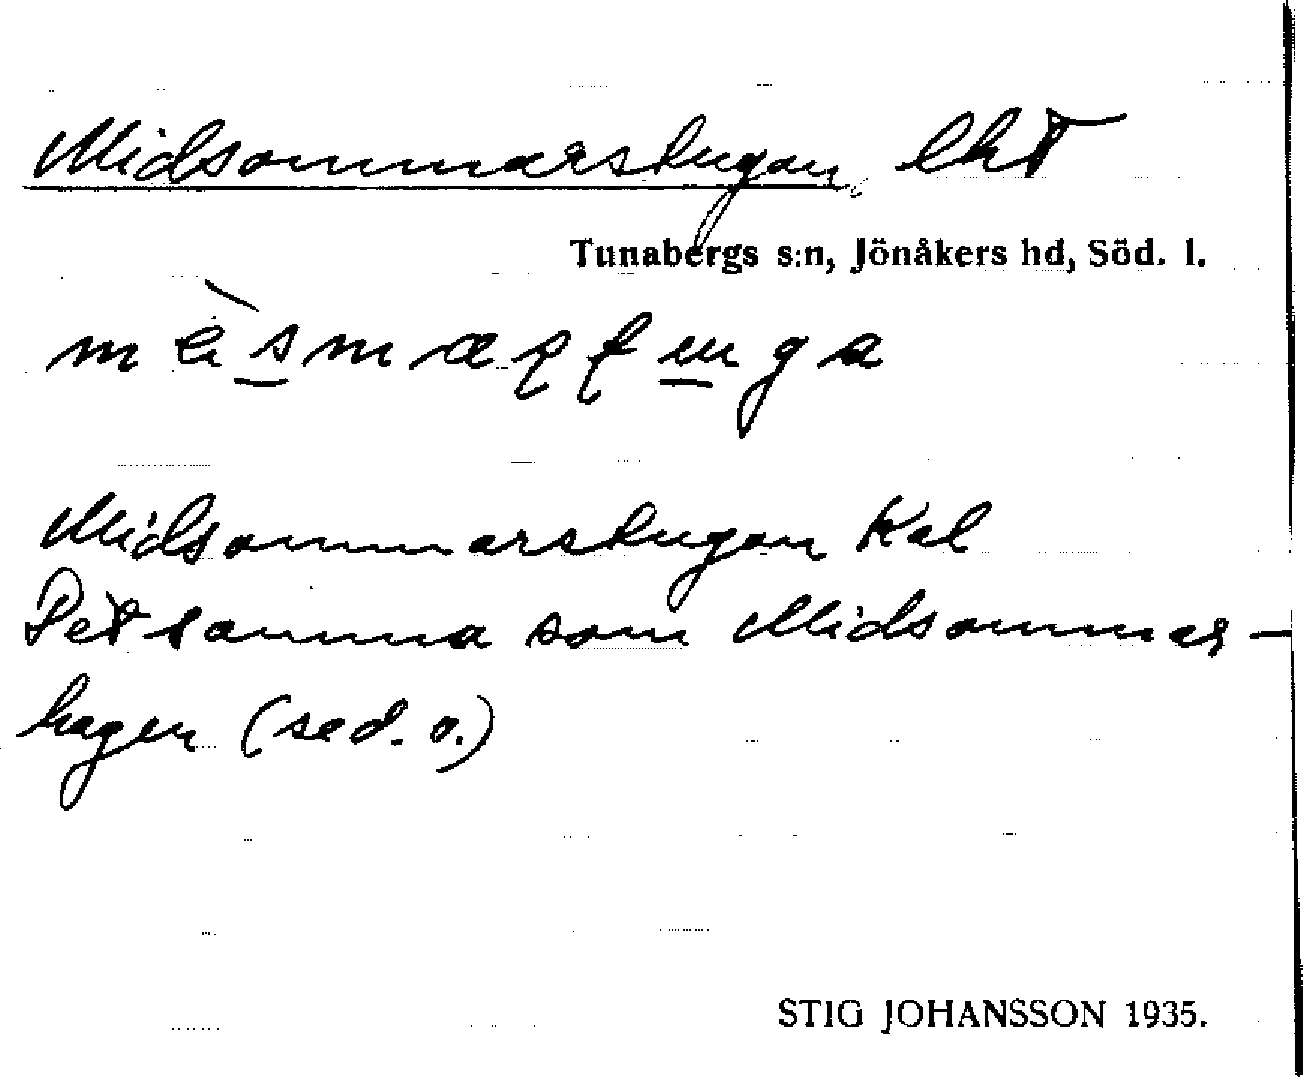 Midsommarstugan, lht
Tunabergs s:n, Jönåkers hd, Söd. l.
Midsommarstugan Kal
Det samma som Midsommar-
hagen (sed. o.)
STIG JOHANSSON 1935.